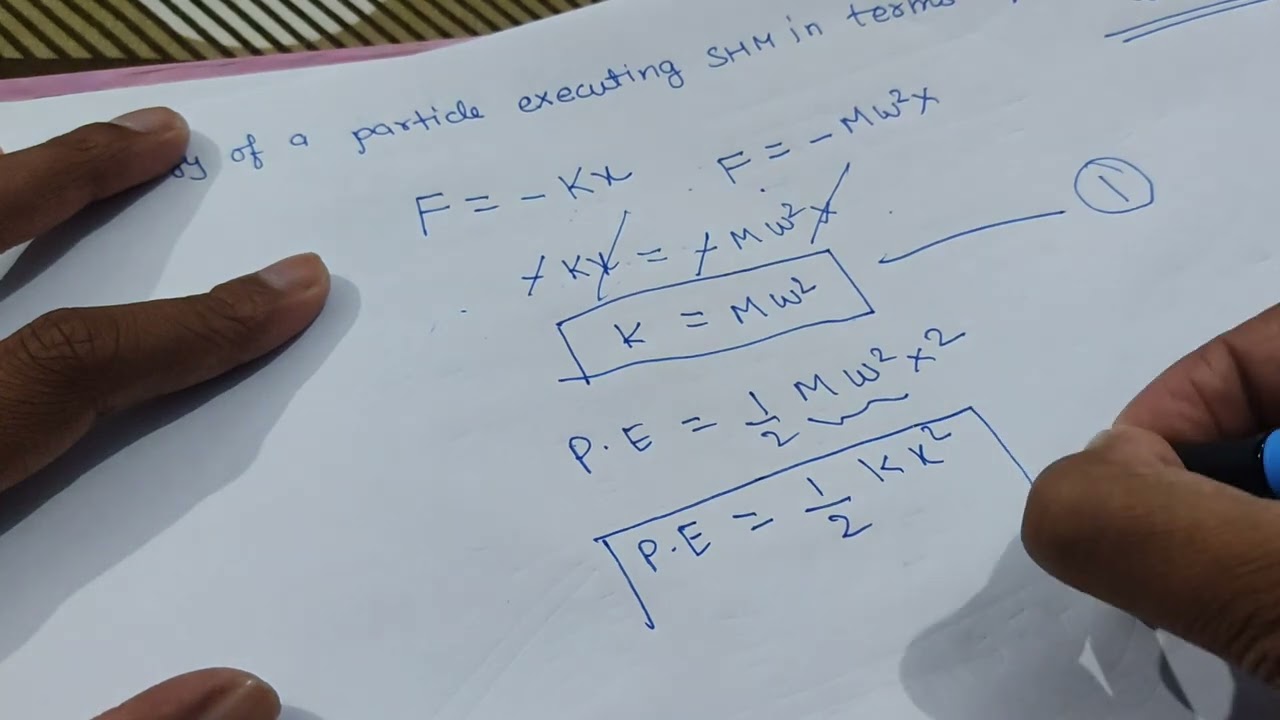 of a particle executing SHM in terms
F = - Kx F = - Mw²x
- Kx = - Mw²x
K = Mw² ①
P.E = 1/2 Mw²x²
P.E = 1/2 Kx²